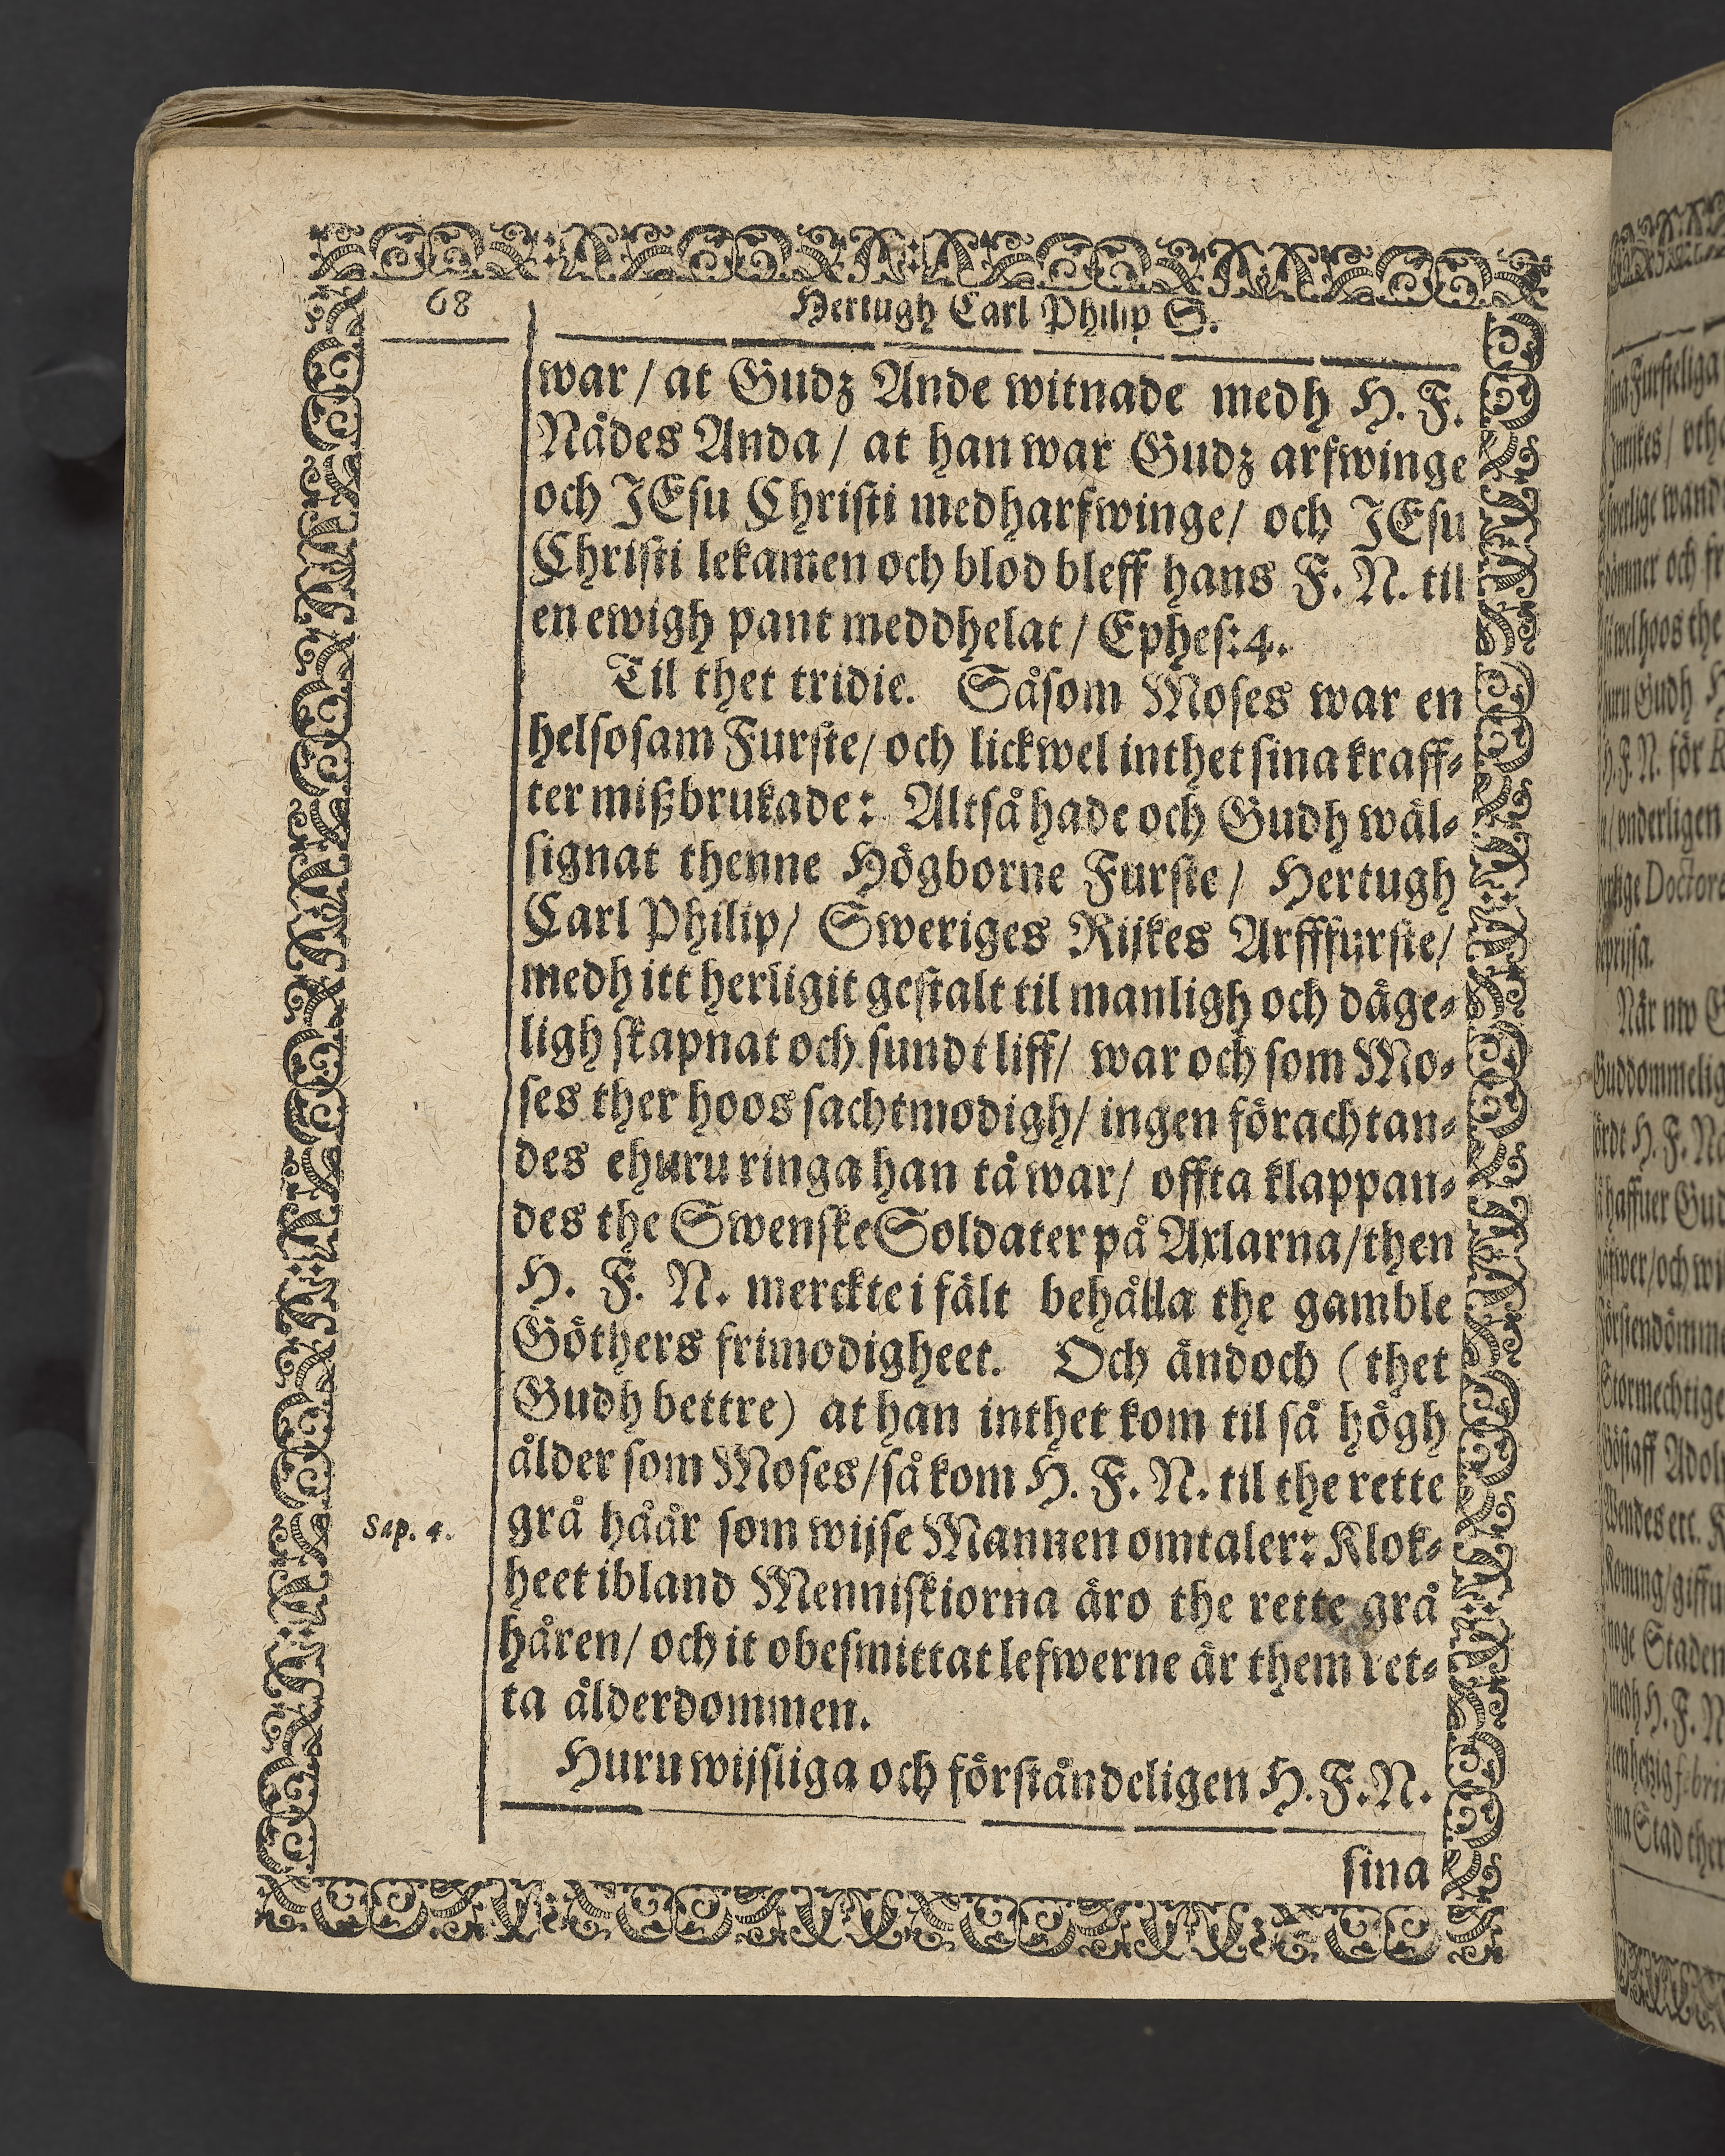 68
Hertugh Carl Philip S.
war / at Gudz Ande witnade medh H. F.
Nådes Anda / at han war Gudz arfwinge
och JEsu Christi medharfwinge / och JEsu
Christi lekamen och blod bleff hans F. N. til
en ewigh pant meddhelat / Ephes: 4.
Til thet tridie. Såsom Moses war en
helsosam Furste / och lickwel inthet sina kraff-
ter mißbrukade: Altså hade och Gudh wäl-
signat thenne Högborne Furste / Hertugh
Carl Philip / Sweriges Rijkes Arfffurste /
medh itt herligit gestalt til manligh och däge-
ligh skapnat och sundt liff / war och som Mo-
ses ther hoos sachtmodigh / ingen förachtan-
des ehururinga han tå war / offta klappan-
des the Swenske Soldater på Axlarna / then
H. F. N. merckte i fält behålla the gamble
Göthers frimodigheet. Och ändoch (thet
Gudh bettre) at han inthet kom til så högh
ålder som Moses / så kom H. F. N. til the rette
Sap. 4.
grå håår som wijse Mannen omtaler: Klok-
heet ibland Menniskiorna äro the rette grå
håren / och it obesmittat lefwerne är them ret-
ta ålderdommen.
Huru wijsliga och förståndeligen H. F. N.
sina
sina Fursteliga
wand
och fr
hoos the
Gudh H
H. F. N. för K
onderligen
Doctore
När nw
Guddommelig
H. F. Nå
haffuer Gud
och wi
Stormechtige
Adol
Wendes etc. K
Konung / giffu
Staden
medh H. F. N
Stad ther